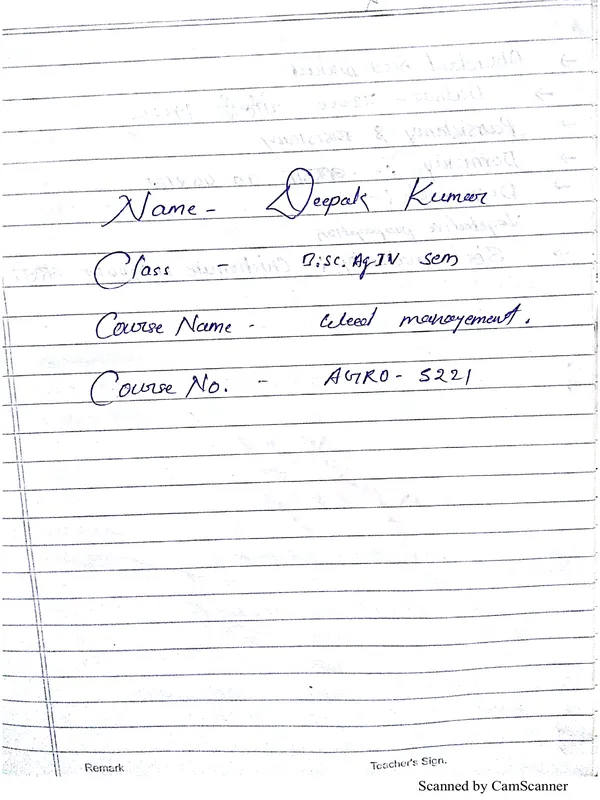 Name - Deepak Kumar
Class - B.sc. Ag IV sem
Course Name - Weed management.
Course No. - AGRO - 5221
Remark Teacher's Sign.
Scanned by CamScanner